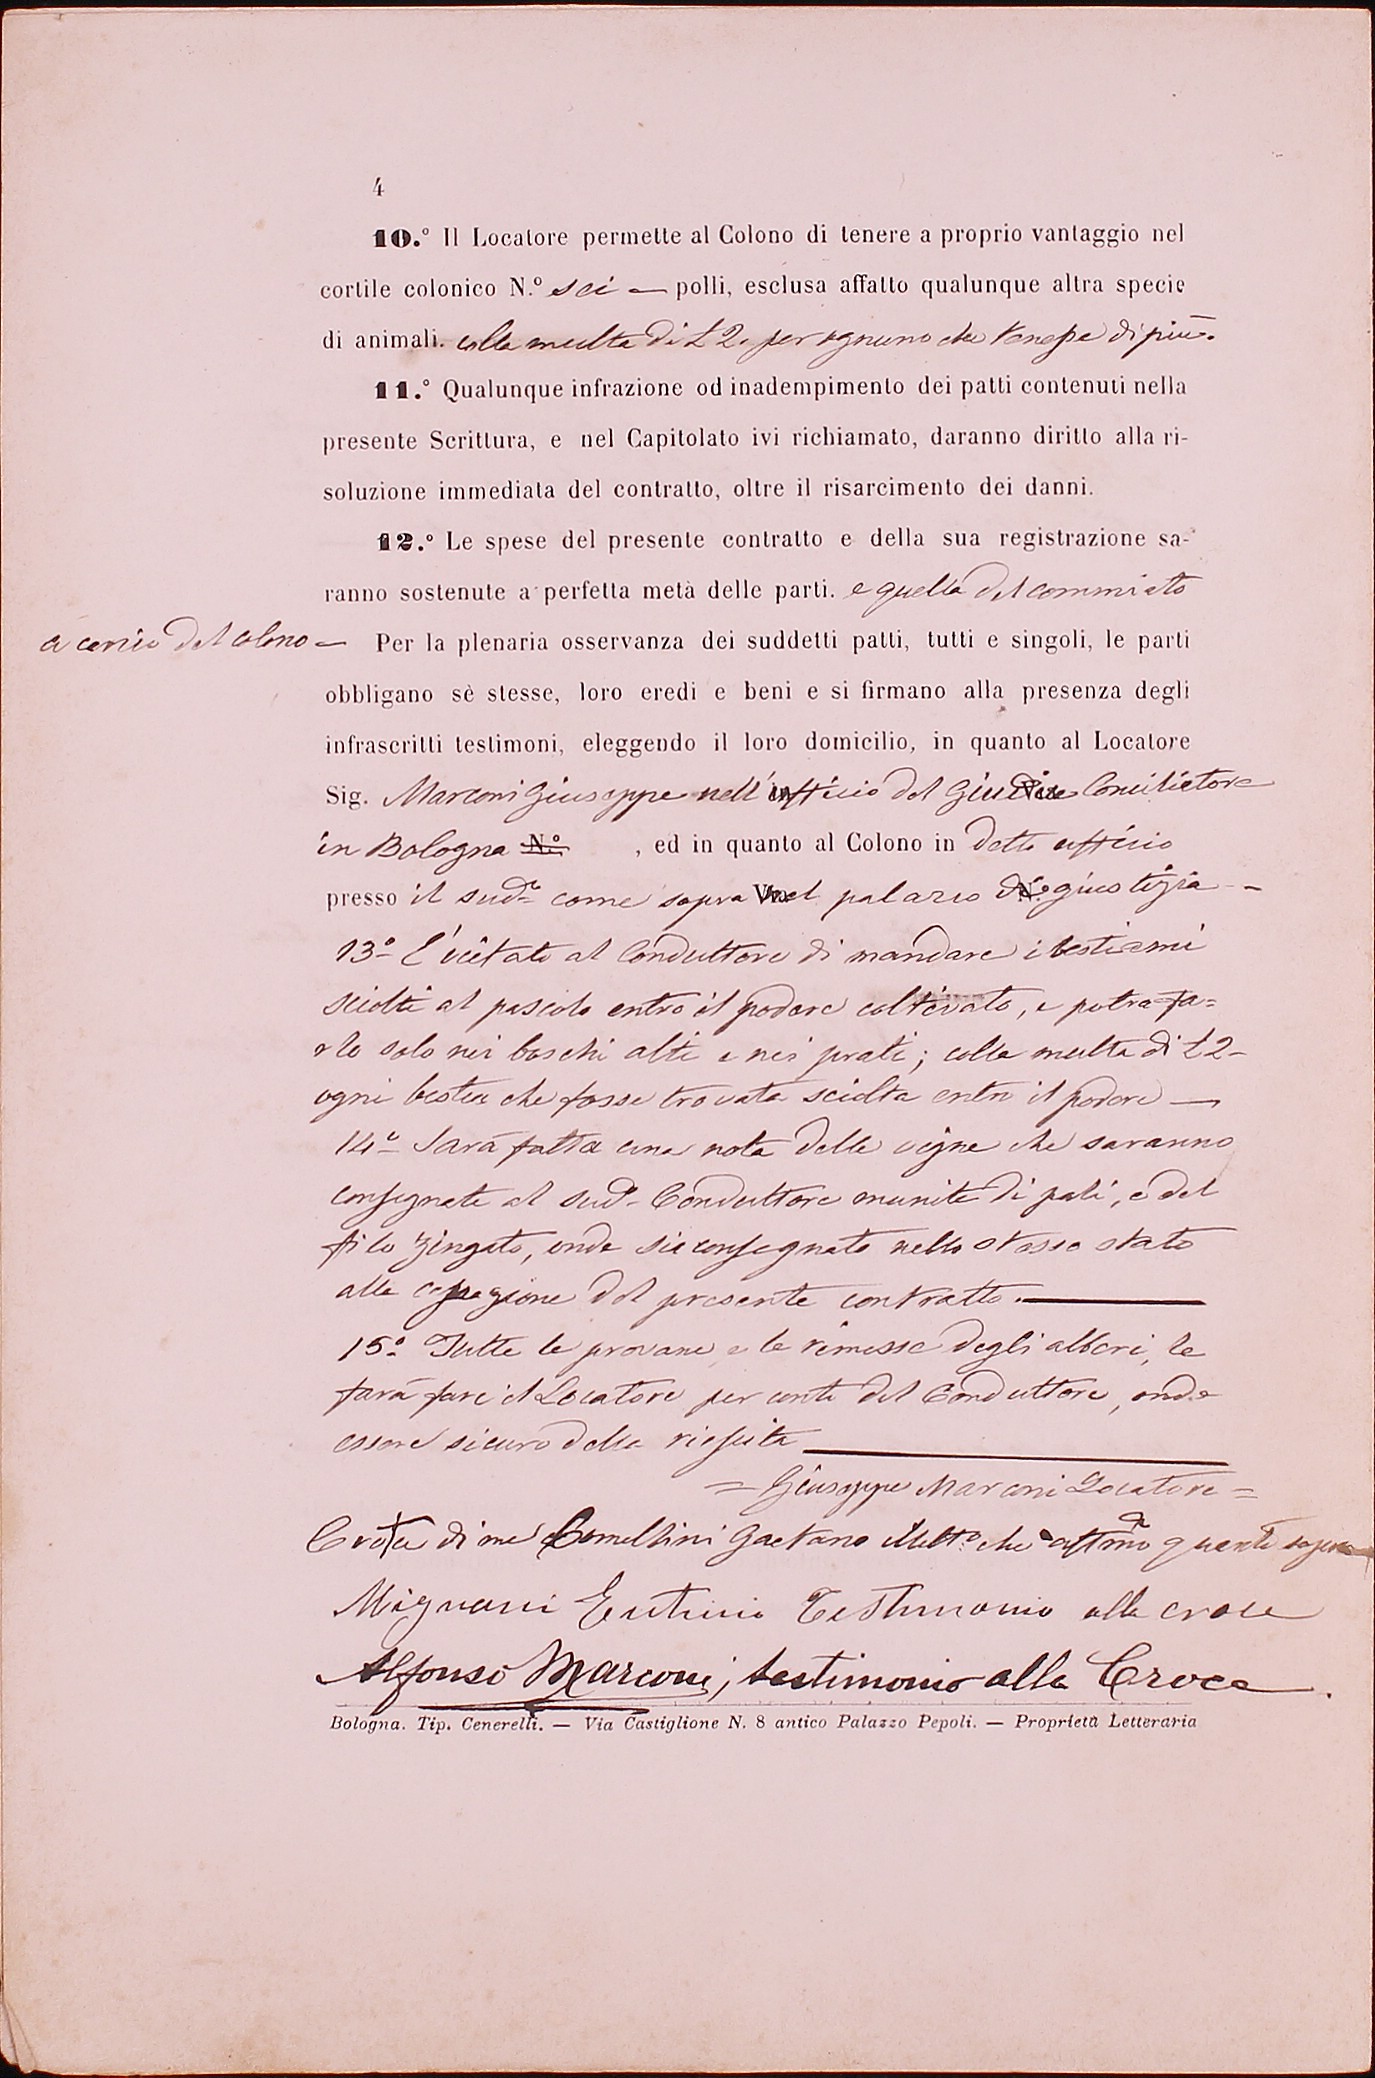 4
10.° Il Locatore permette al Colono di tenere a proprio vantaggio nel
cortile colonico N.° sei — polli, esclusa affatto qualunque altra specie
di animali. colla multa di £ 2. per ognuno che tenesse di più.
11.° Qualunque infrazione od inadempimento dei patti contenuti nella
presente Scrittura, e nel Capitolato ivi richiamato, daranno diritto alla ri-
soluzione immediata del contratto, oltre il risarcimento dei danni.
12.° Le spese del presente contratto e della sua registrazione sa-
ranno sostenute a perfetta metà delle parti. e quella del commiato
a carico del colono — Per la plenaria osservanza dei suddetti patti, tutti e singoli, le parti
obbligano sè stesse, loro eredi e beni e si firmano alla presenza degli
infrascritti testimoni, eleggendo il loro domicilio, in quanto al Locatore
Sig. Marconi Giuseppe nell'ufficio del Giudice Conciliatore
in Bologna N.° , ed in quanto al Colono in detto ufficio
presso il sud.° come sopra nel palazzo di giustizia -
13° È vietato al Conduttore di mandare i bestiami
sciolti al pascolo entro il podere coltivato, e potrà fa=
rlo solo nei boschi alti e nei prati; colla multa di £ 2 -
ogni bestia che fosse trovata sciolta entro il podere —
14° Sarà fatta una nota delle vigne che saranno
consegnate al sud.° Conduttore munite di pali, e del
filo zingato, onde sia consegnato nello stesso stato
alla cessazione del presente contratto. —
15° Tutte le provane e le rimesse degli alberi, le
farà fare il Locatore per conto del Conduttore, onde
essere sicuro della riescita —
= Giuseppe Marconi Locatore =
Croce di me Comellini Gaetano Illett.° che affermo quanto sopra
Mignani Eutimio Testimonio alla croce
Alfonso Marconi, testimonio alla Croce.
Bologna. Tip. Cenerelli. — Via Castiglione N. 8 antico Palazzo Pepoli. — Proprietà Letteraria